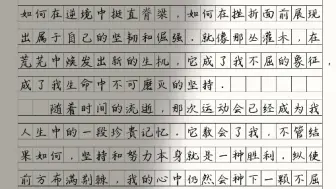 如何在逆境中挺直脊梁，如何在挫折面前展现
出属于自己的坚韧和倔强。就像那丛灌木，在
荒芜中焕发出新的生机，它成了我不屈的象征，
成了我生命中不可磨灭的坚持。
随着时间的流逝，那次运动会已经成为我
人生中的一段珍贵记忆。它教会了我，不管结
果如何，坚持和努力本身就是一种胜利。纵使
前方布满荆棘，我的心中仍然会种下一颗不屈